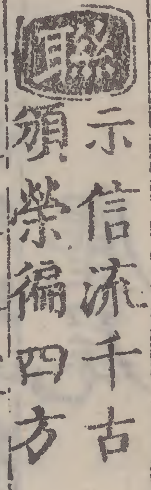 示信流千古
頒榮徧四方